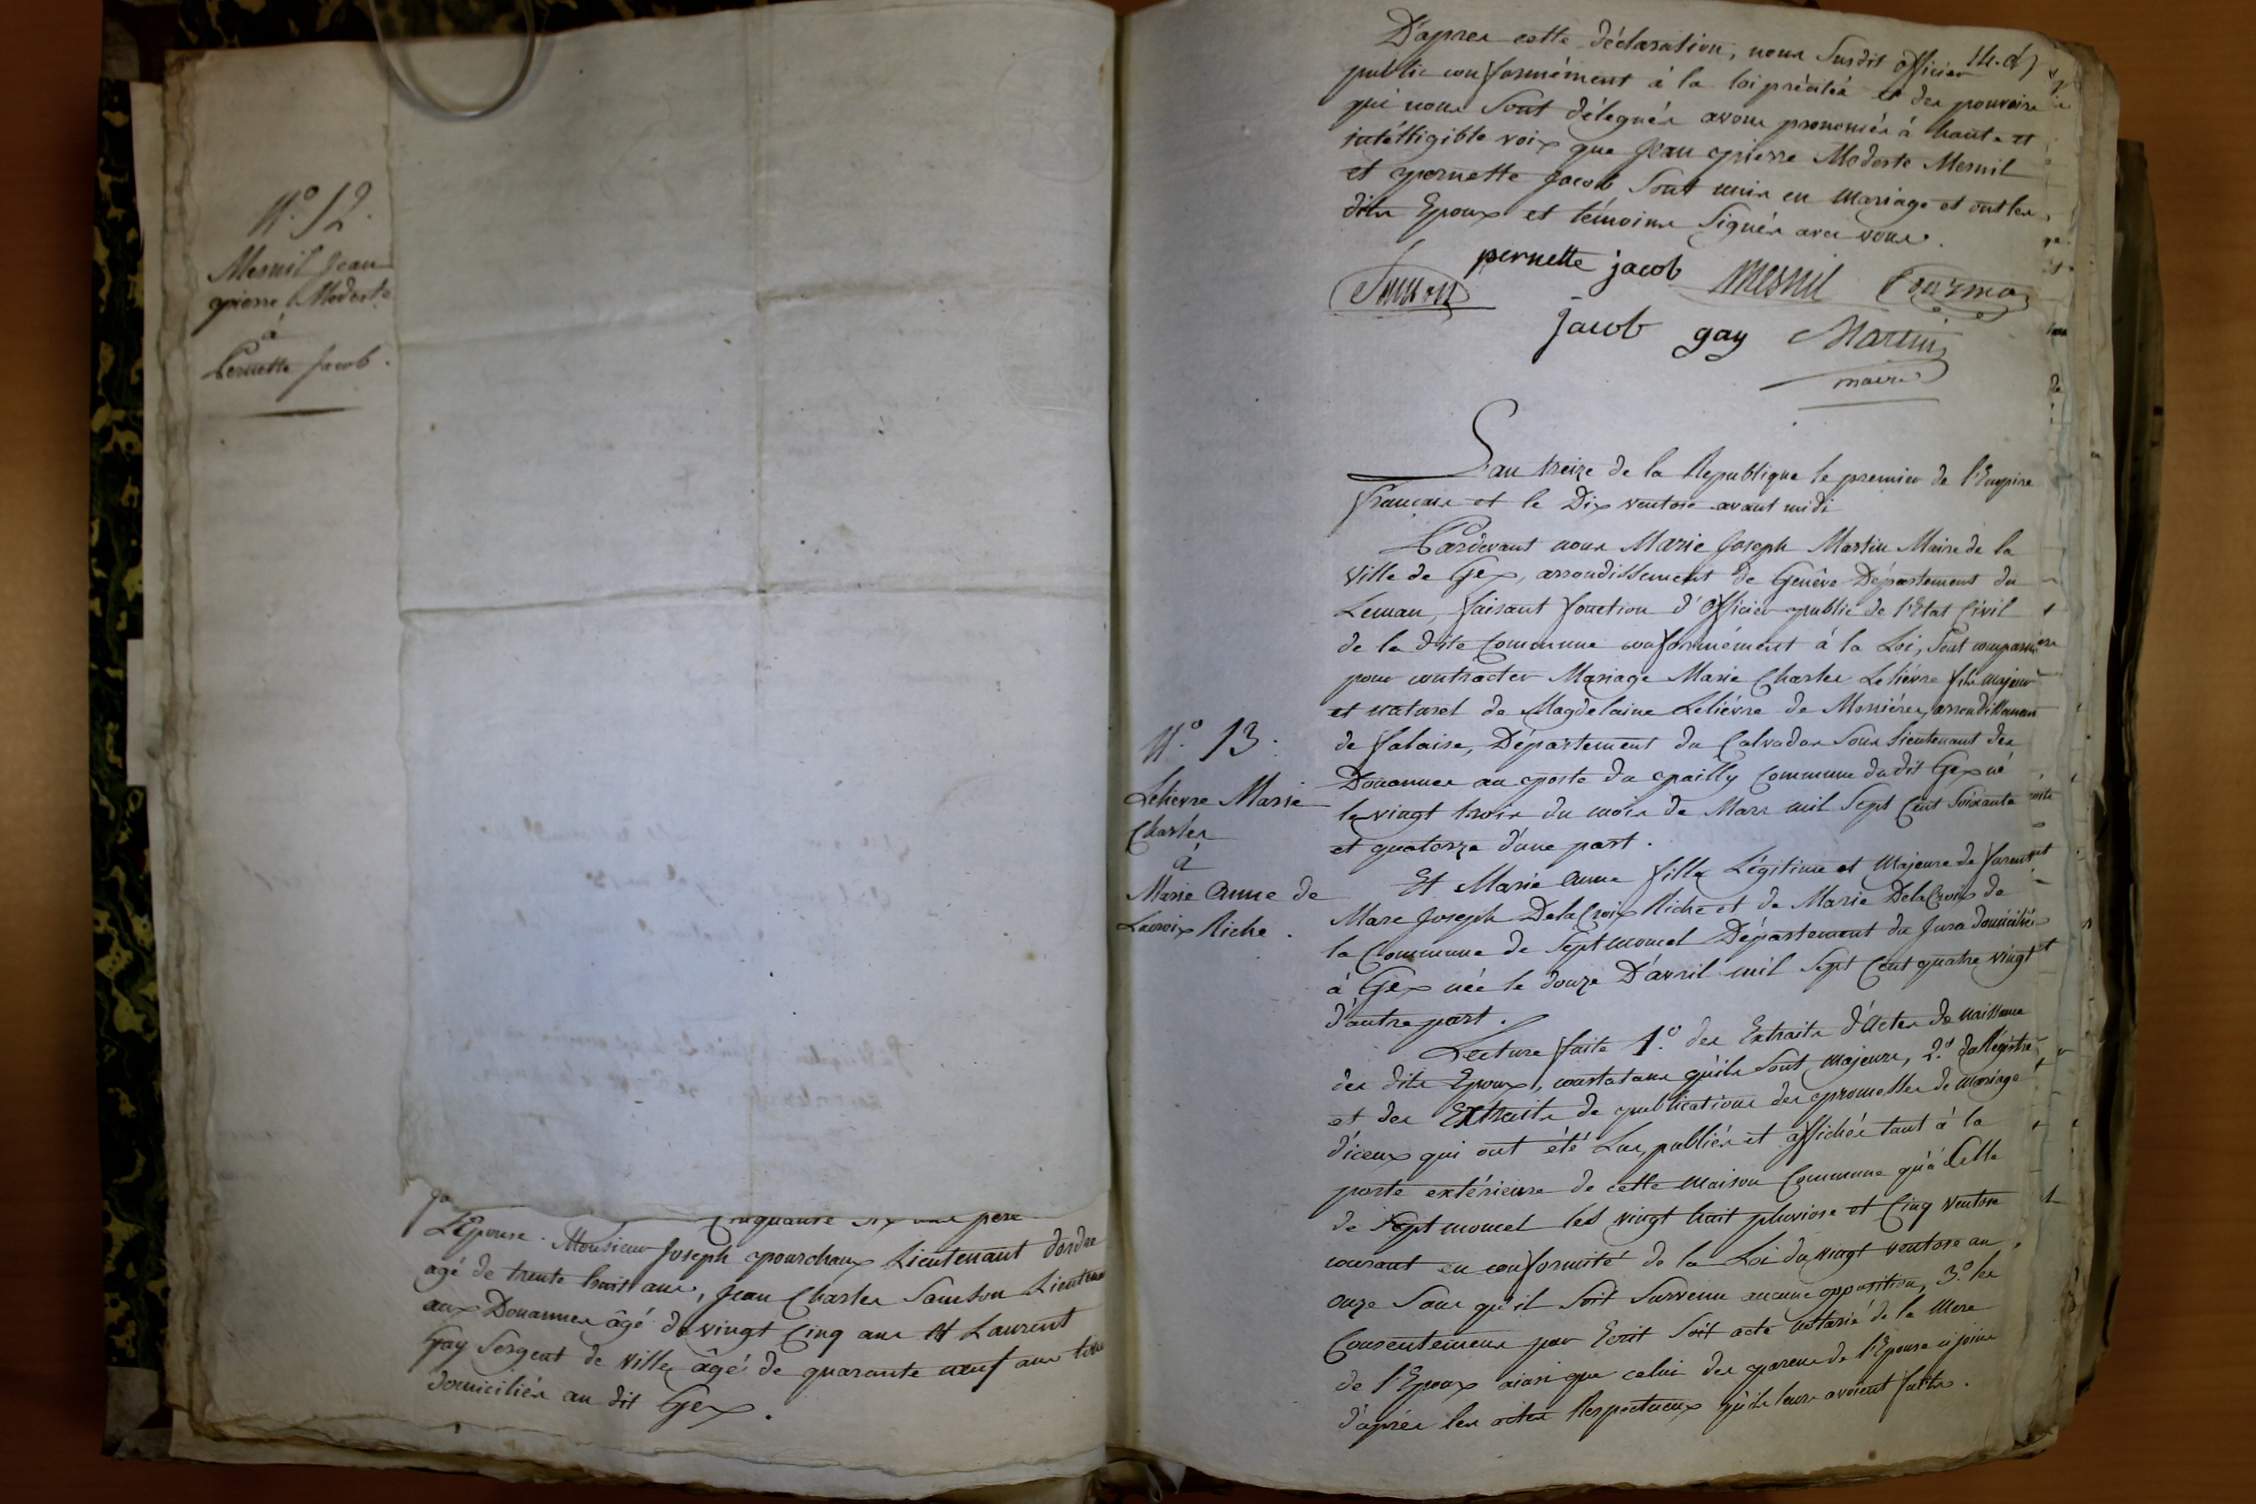 N.º 12.
Mesnil Jean
pierre Modeste
à
Pernette Jacob.
Cinquante six ans pere
L'Epouse. Monsieur Joseph pourchaux Lieutenant d'ordre
agé de trente huit ans, Jean Charles Samson Lieutenant
aux Douannes âgé de vingt Cinq ans et Laurent
Gay Sergent de Ville âgé de quarante neuf ans tous
domiciliés au dit Gex.
D'apres cette déclaration, nous Susdit officier
public conformément à la loi précitée et des pouvoirs
qui nous Sont délegués avons prononcés à haute et
intélligible voix que Jean pierre Modeste Mesnil
et pernette Jacob Sont unis en Mariage et ont les
dits Epoux et témoins Signés avec nous.
pernette jacob Mesnil
Samson
jacob gay Martin
maire
L'an treize de la Republique le premier de l'Empire
français et le Dix ventose avant midi
Pardevant nous Marie Joseph Martin Maire de la
Ville de Gex, arrondissement de Genêve Département du
Leman, faisant fonction d'officier public de l'Etat Civil
de la dite Commune conformément à la Loi, Sont comparus
pour contracter Mariage Marie Charles Lelièvre fils majeur
et naturel de Magdelaine Lelièvre de Mesnières, arrondissement
de falaise, Département du Calvados Sous Lieutenant des
Douannes au poste du pailly Commune du dit Gex né
le vingt trois du mois de Mars mil Sept Cent Soixante
et quatorze d'une part.
N.º 13.
Lelievre Marie
Charles
à
Marie Anne de
Lacroix Riche.
Et Marie Anne fille Légitime et Majeure de
Marc Joseph DelaCroix Riche et de Marie DelaCroix de
la Commune de Septmoncel Département du Jura domiciliée
à Gex née le douze D'avril mil Sept Cent quatre vingt
d'autre part.
Lecture faite 1.º des Extraits d'Actes de naissance
des dits Epoux, constatans qu'ils Sont majeurs, 2.º du Régistre
et des Extraits de publications des promesses de Mariage
d'iceux qui ont été Lus, publiés et affichés tant à la
porte extérieure de cette maison Commune qu'à Celle
de Septmoncel les vingt huit pluviose et Cinq Ventose
courant en conformité de la Loi du vingt ventose an
onze Sans qu'il Soit Survenu aucune opposition, 3.º les
Consentemens par Ecrit Soit acte notarié de la Mere
de l'Epoux ainsi que celui des parens de l'Epouse ci joints
d'après les actes Respectueux qu'ils leurs avoient faits.